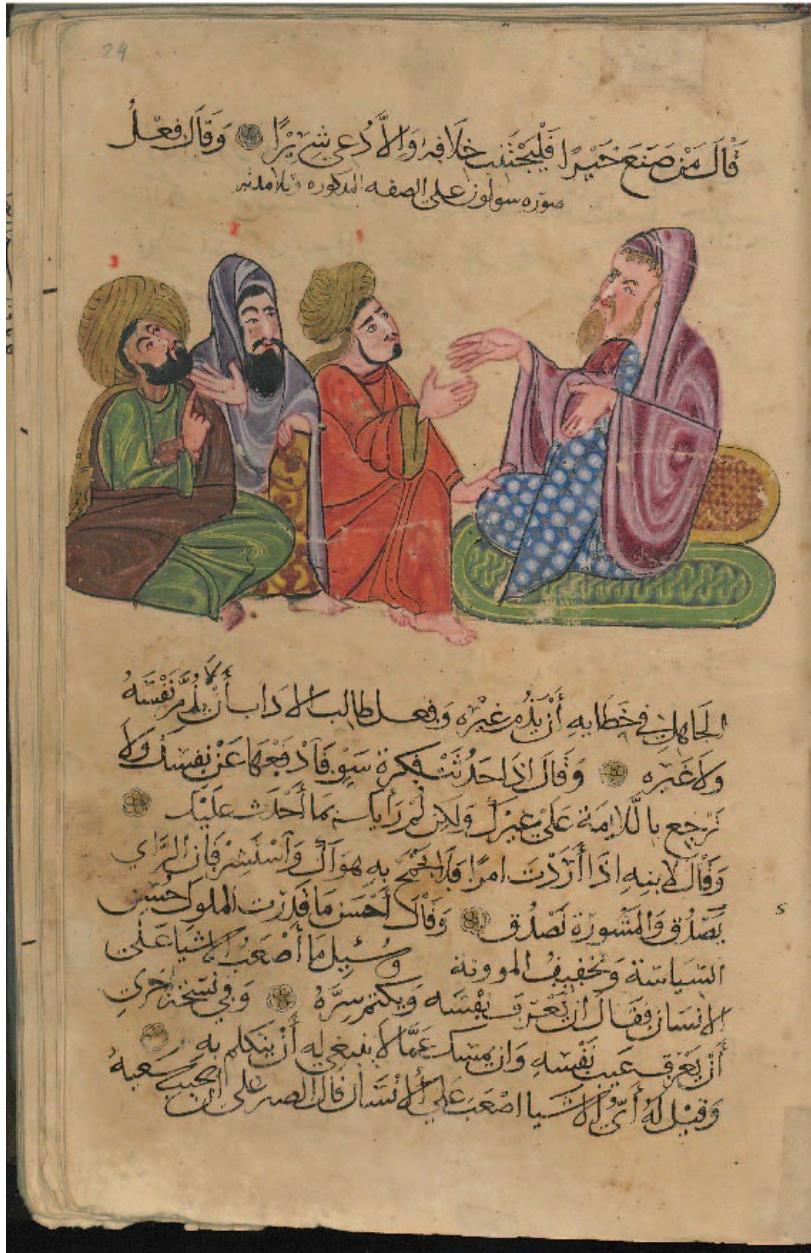 24
قَالَ مَنْ صَنَعَ خَيْرًا فَلْيَجْتَنِب خِلَافَه وَاِلَّا دُعِيَ شِرِّيْرًا وَقَالَ فِعْلُ
صوره سولون على الصفه المذكوره وتلامذته
3 2 1
الجَاهِلِ في خَطَايِهِ أَنْ يَذُمَّ غَيْرَه وَفعل طالب الادَاب أَنْ يَذُمَّ نَفْسَهُ
وَلا غَيْره وَقَالَ اذَا حَدُثَتْ فِكرَة سَوْء فَادفَعْهَا عَنْ نفسِكَ وَلَا
تَرجع باللَّايمَة عَلَى غيرِكَ وَلكن لُمْ رَأيك بمَا أَحْدَث عَليْكَ
وَقَالَ لابنِهِ اذَا أَرَدْتَ امرًا فَلَا بِهِ هَوَاكَ وَاسْتَشِرْ فَانَّ الرَّاي
يَصْدُق وَالمَشورَة تَصْدُق وَقَالَ أَحْسَن مَا الملوك حُسْن
السّيَاسَة وَتخفيفُ الموونة وسُئِلَ مَا أَصْعَبُ الاشيَا عَلَى
الانسَان فقَالَ انْ يَعْرِفَ نَفْسَه وَيكتم سِرَّهُ وَفي نسخة اخرى
أَنْ يَعْرِفَ عيب نَفْسِه وَانْ يمسك عَمَّا لا ينبغي له أَنْ يتكلم به
وَقيْل لَهُ أَىُّ الاشيَا اصْعَب عَلَى الانْسَان قال الصبر على
s